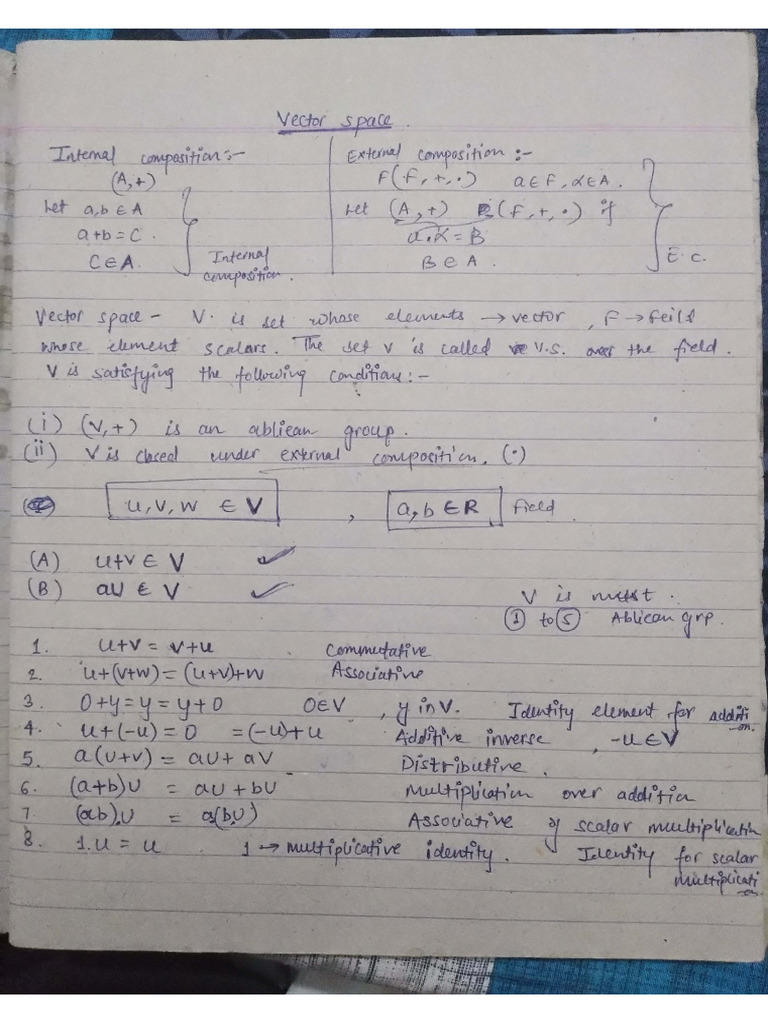 Vector space.
Internal composition:-
(A,+)
Let a,b ∈ A
a+b = C.
C ∈ A.
Internal composition.
External composition :-
F(F,+,·) a∈F, α∈A.
Let (A,+) (F,+,·) if
a.α = B
B ∈ A.
E.C.
Vector space - V. is set whose elements → vector, F → feild
whose element scalars. The set V is called V.S. over the field.
V is satisfying the following conditions:-
(i) (V,+) is an ablican group.
(ii) V is closed under external composition. (·)
u,v,w ∈ V , a,b ∈ R field
(A) u+v ∈ V ✓
(B) au ∈ V ✓
V is must.
① to ⑤ Ablican grp.
1. u+v = v+u Commutative
2. u+(v+w) = (u+v)+w Associative
3. 0+y = y = y+0 0∈V , y in V. Identity element for addition.
4. u+(-u) = 0 = (-u)+u Additive inverse , -u∈V
5. a(u+v) = au+av Distributive.
6. (a+b)u = au+bu Multiplication over addition
7. (ab).u = a(b.u) Associative of scalar multiplication
8. 1.u = u . 1 → multiplicative identity. Identity for scalar
multiplication